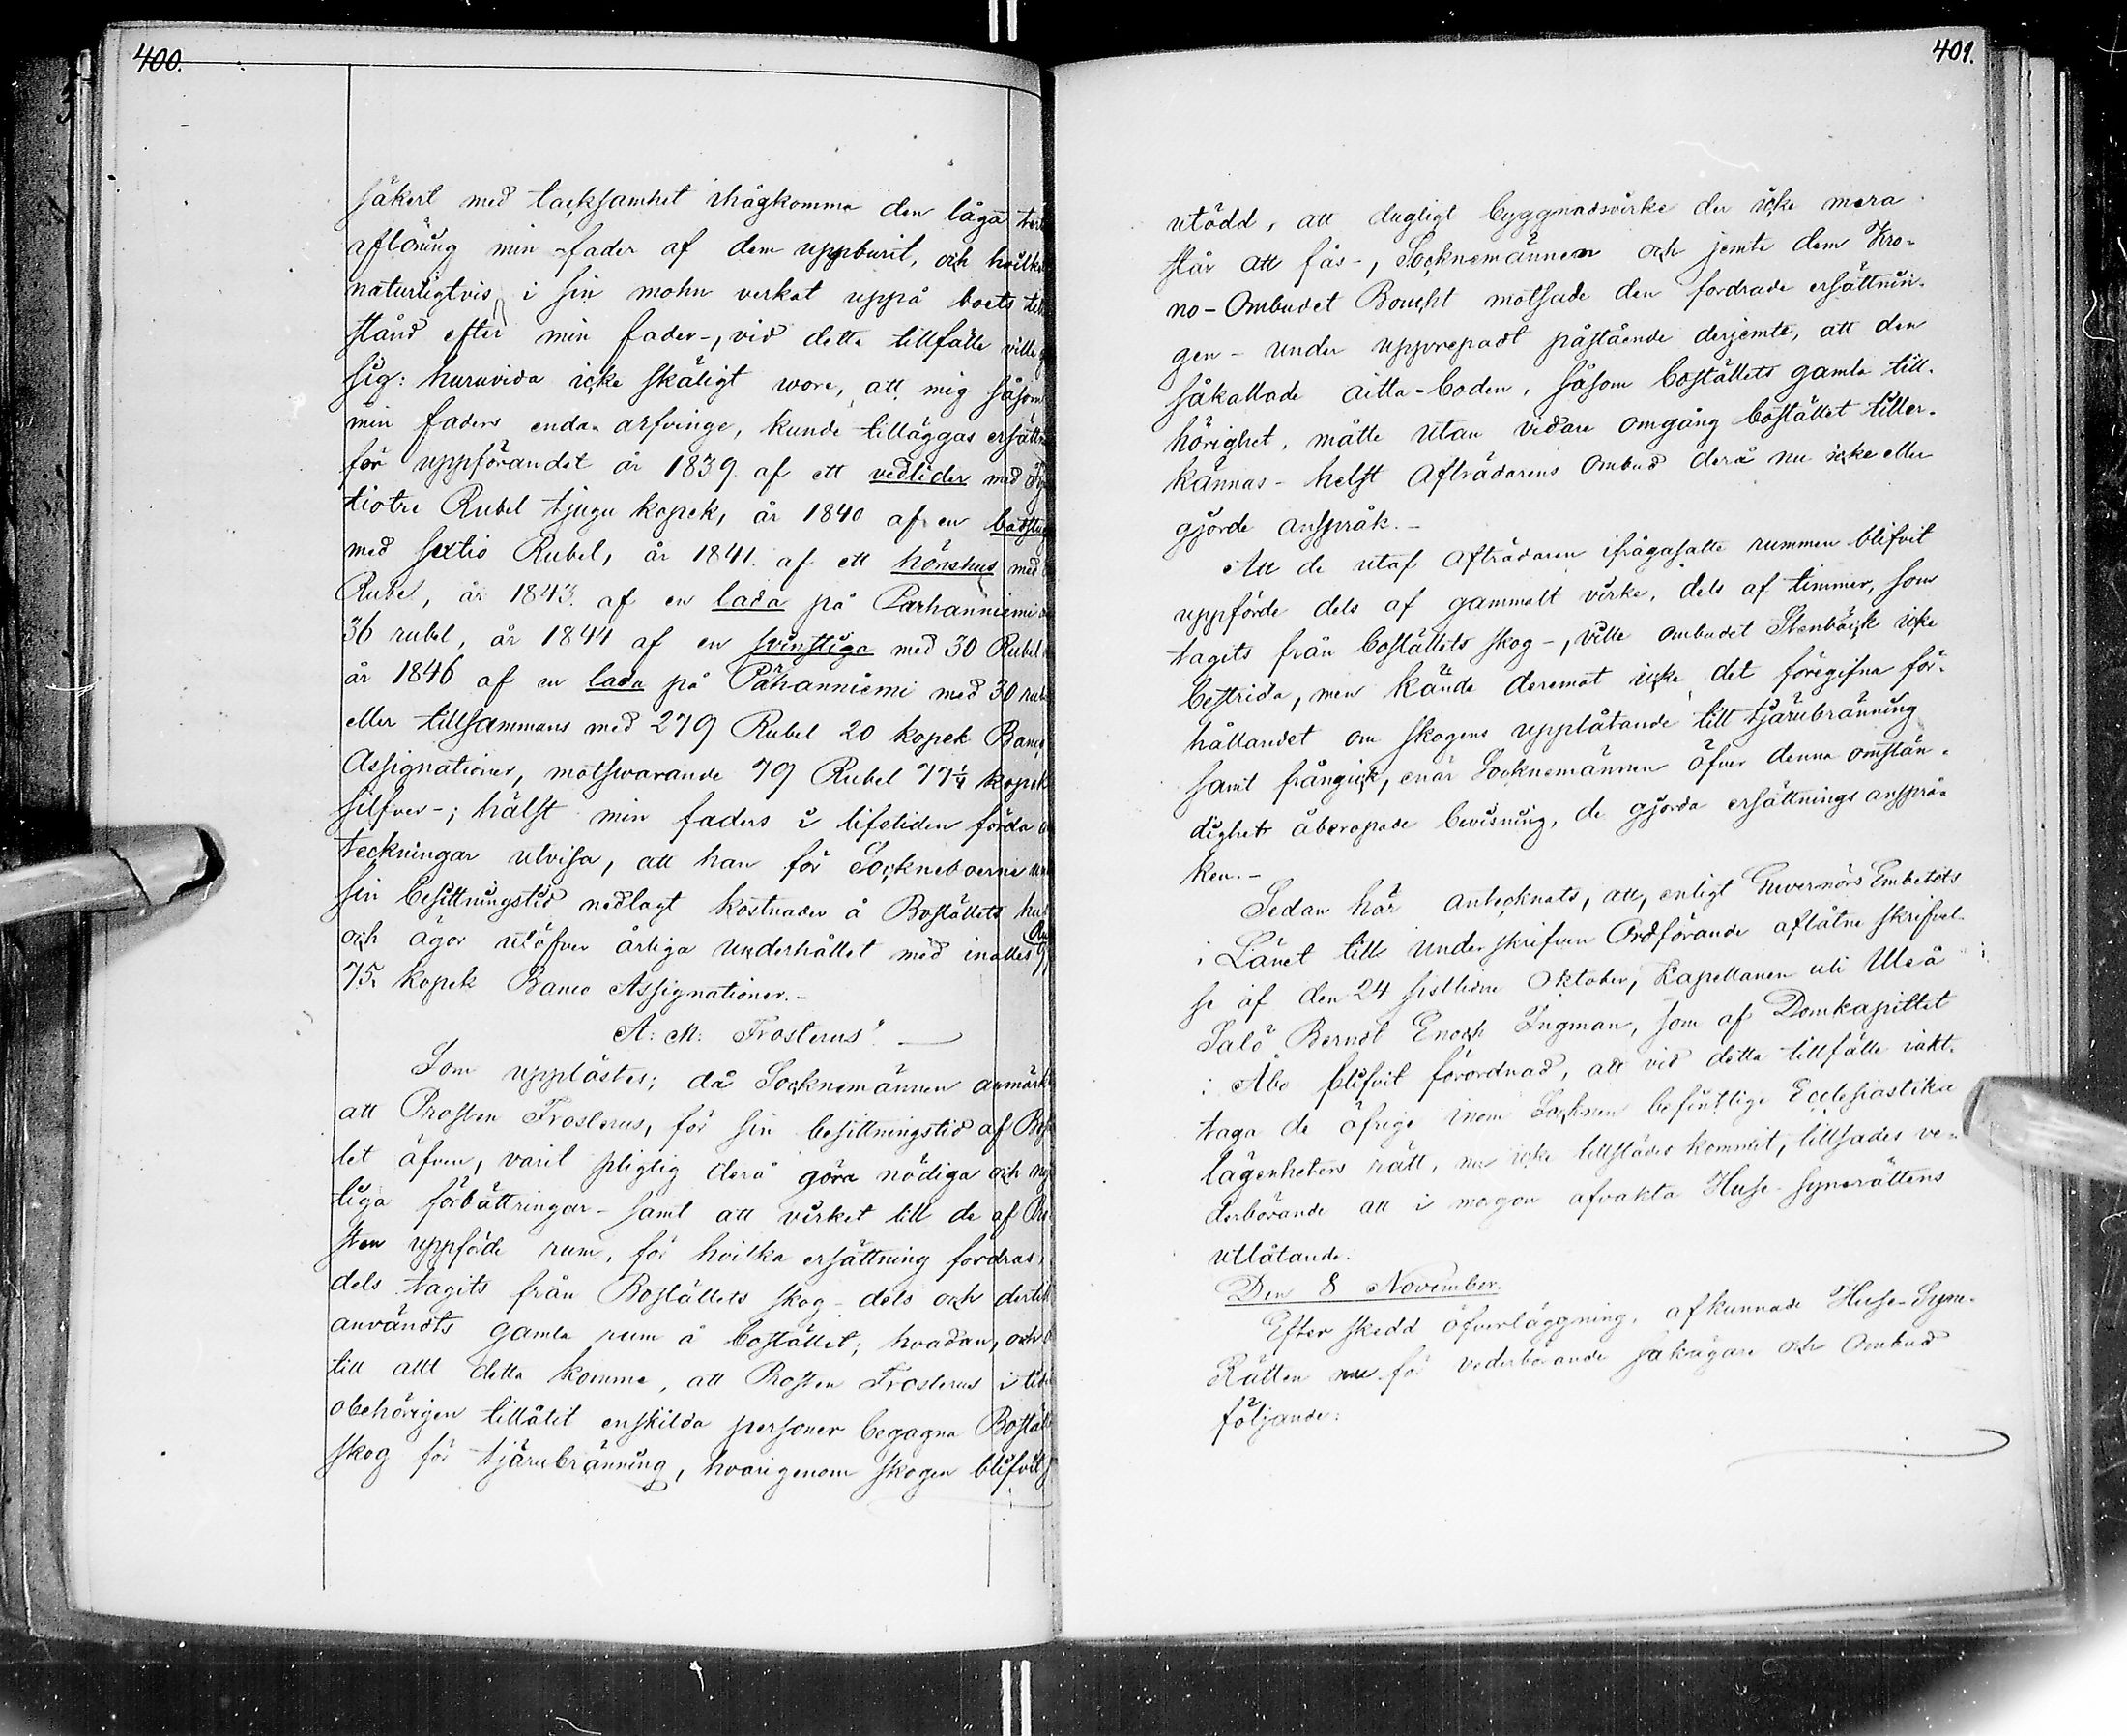 400.
säkert med tacksamhet ihågkomma den låga
aflöning min fader af dem uppburit, och hvilke
naturligtvis i sin mohn verkat uppå boets till
stånd efter min fader-, vid detta tillfälle ville
sig: huruvida icke skäligt wore, att mig såsom
min faders enda arfvinge, kunde tilläggas ersättn
för uppförandet år 1839 af ett vedlider med
tiotre Rubel tjugu kopek, år 1840 af en badstu
med sextio Rubel, år 1841. af ett hönshus med
Rubel, år 1843. af en lada på Parhanniemi
36 rubel, år 1844 af en svinstiga med 30 Rubel
år 1846 af en lada på Pårhanniemi med 30 rub
eller tillsammans med 279 Rubel 20 kopek Banco
Assignationer, motswarande 79 Rubel 77 1/4 kopek
silfver-; hälst min faders i lifstiden förda
teckningar utvisa, att han för Sockneboerne
sin besittningstid nedlagt kostnader å Boställets hus
och ägor utöfver årliga underhållet med inalles
75. kopek Banco Assignationer.-
A: M: Frosterus".
Som upplästes; då Socknemännen anmärkt
att Prosten Frosterus, för sin besittningstid af Bos
let äfven, varit pligtig derå göra nödiga och ny
tiga förbättringar - samt att virket till de af Pro
sten uppförde rum, för hvilka ersättning fordras,
dels tagits från Boställets skog - dels och dertill
användts gamla rum å bostället; hvadan, och
till allt detta komme, att Prosten Frosterus i tid
obehörigen tillåtit enskilda personer begagna Bostäl
skog för tjärubränning, hvarigenom skogen blifvit
401.
utödd, att dugligt byggnadsvirke der icke mera
står att fås-, Socknemännen och jemte dem Kro-
no-Ombudet Boucht motsade den fordrade ersättnin-
gen - under upprepadt påstående derjemte, att den
såkallade aitta-boden, såsom boställets gamla till-
hörighet, måtte utan vidare omgång bostället tiller-
kännas - helst Afträdarens Ombud derå nu icke eller
gjorde anspråk.-
Att de utaf Afträdaren ifrågasatte rummen blifvit
uppförde dels af gammalt virke, dels af timmer, som
tagits från boställets skog-, ville ombudet Stenbäck icke
bestrida, men kände deremot icke det föregifna för-
hållandet om skogens upplåtande till tjärubränning
samt frångick, enär Socknemännen öfver denna omstän-
dighet åberopade bevisning, de gjorda ersättnings ansprå-
ken.-
Sedan här antecknats, att, enligt Guvernörs Embetets
i Länet till underskrifven Ordförande aflåtne skrifvel-
se af den 24 sistlidne Oktober, Kapellanen uti Uleå
Salö Berndt Enoch Ingman, som af Domkapitlet
i Åbo blifvit förordnad, att vid detta tillfälle iakt-
taga de öfrige inom Socknen befintlige Ecclesiastika
lägenheters rätt, nu icke tillstädes kommit, tillsades ve-
derbörande att i morgon afvakta Huse-Synerättens
utlåtande.
Den 8 November.
Efter skedd öfverläggning, afkunnade Huse-Syne-
Rätten nu för vederbörande sakägare och Ombud
följande: